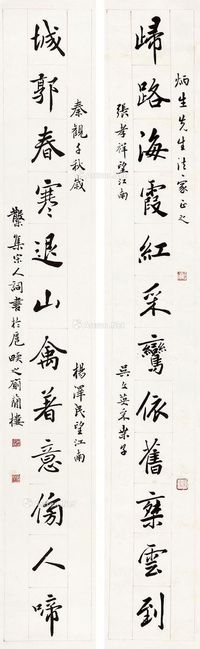 炳生先生法家正之
歸路海霞紅采鸞依舊乘雲到
張孝祥望江南
吳文英采桑子
秦觀千秋歲
楊澤民望江南
城郭春寒退山禽着意傍人啼
集宋人詞書於滬